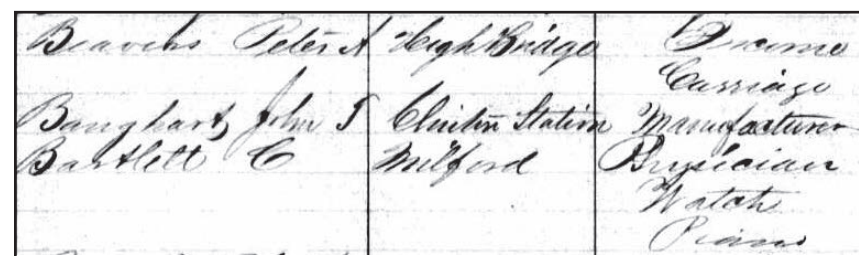 Beavers Peter A High Bridge Income
Carriage
Banghart, John T Clinton Station Manufacturer
Bartlett C Milford Physician
Watch
Piano